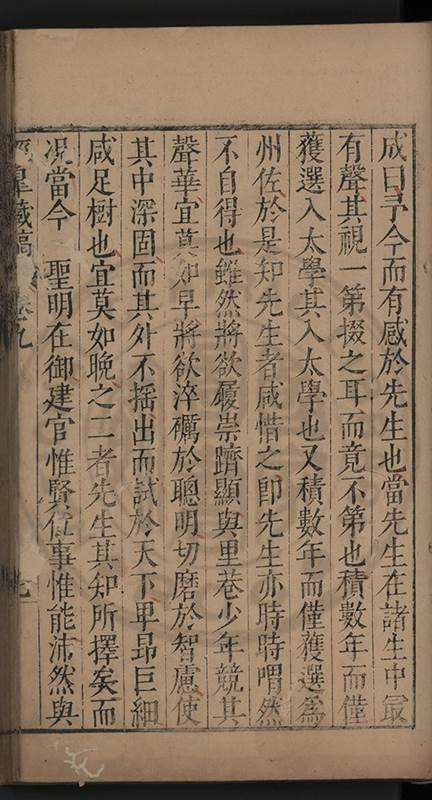 成曰予今而有感於先生也當先生在諸生中最
有聲其視一第掇之耳而竟不第也積數年而僅
獲選入太學其入太學也又積數年而僅獲選為
州佐於是知先生者咸惜之即先生亦時時喟然
不自得也雖然將欲履崇躋顯與里巷少年競其
聲華宜莫如早將欲淬礪於聰明切磨於智慮使
其中深固而其外不搖出而試於天下卑昂巨細
咸足樹也宜莫如晚之二者先生其知所擇矣而
況當今 聖明在御建官惟賢位事惟能沛然與
藏稿 卷九 七